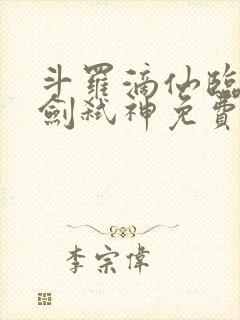 斗羅滴仙臨
劍弒神免費
李宗偉